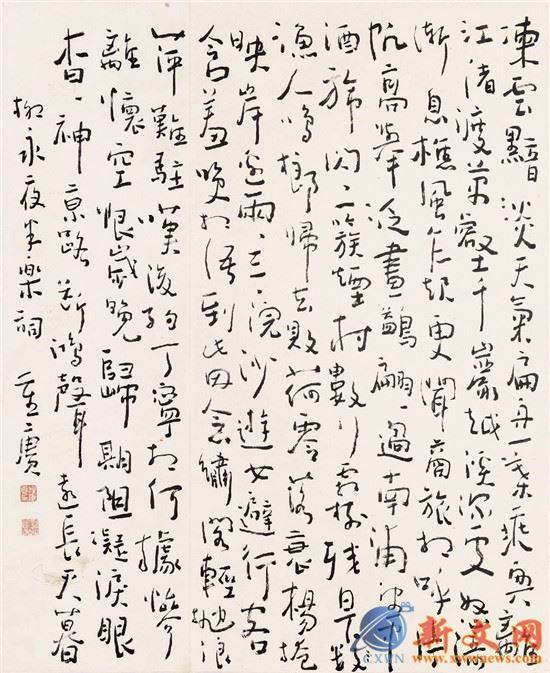 凍雲黯淡天氣扁舟一葉乘興離
江渚渡萬壑千巖越溪深處怒濤
漸息樵風乍起更聞商旅相呼片
帆高舉泛畫鷁翩々過南浦望中
酒旆閃々一簇煙村數行霜樹殘日下
漁人鳴榔歸去敗荷零落衰楊掩
映岸邊兩々三々浣沙遊女避行客
含羞笑相語到此因念繡閣輕抛浪
萍難駐嘆後約丁寧竟何據慘
離懷空恨歲晚歸期阻凝淚眼
杳々神京路斷鴻聲遠長天暮
柳永夜半樂詞
新文网
CXWN